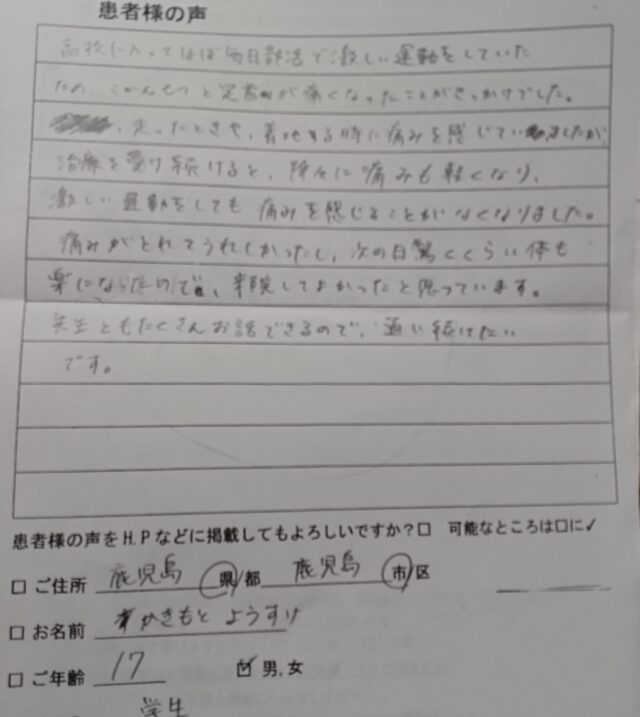 患者様の声
高校に入ってほぼ毎日部活で激しい運動をしていた
ため、こかんせつと足首が痛くなったことがきっかけでした。
、走ったときや、着地する時に痛みを感じていましたが
治療を受け続けると、除々に痛みも軽くなり、
激しい運動をしても痛みを感じることがなくなりました。
痛みがとれてうれしかったし、次の日驚くくらい体も
楽になったので、来院してよかったと思っています。
先生ともたくさんお話できるので、通い続けたい
です。
患者様の声をH.Pなどに掲載してもよろしいですか?□ 可能なところは□に✓
□ ご住所 鹿児島 県/都 鹿児島 市/区
□ お名前 かきもと ようすけ
□ ご年齢 17 ☑ 男,女
学生